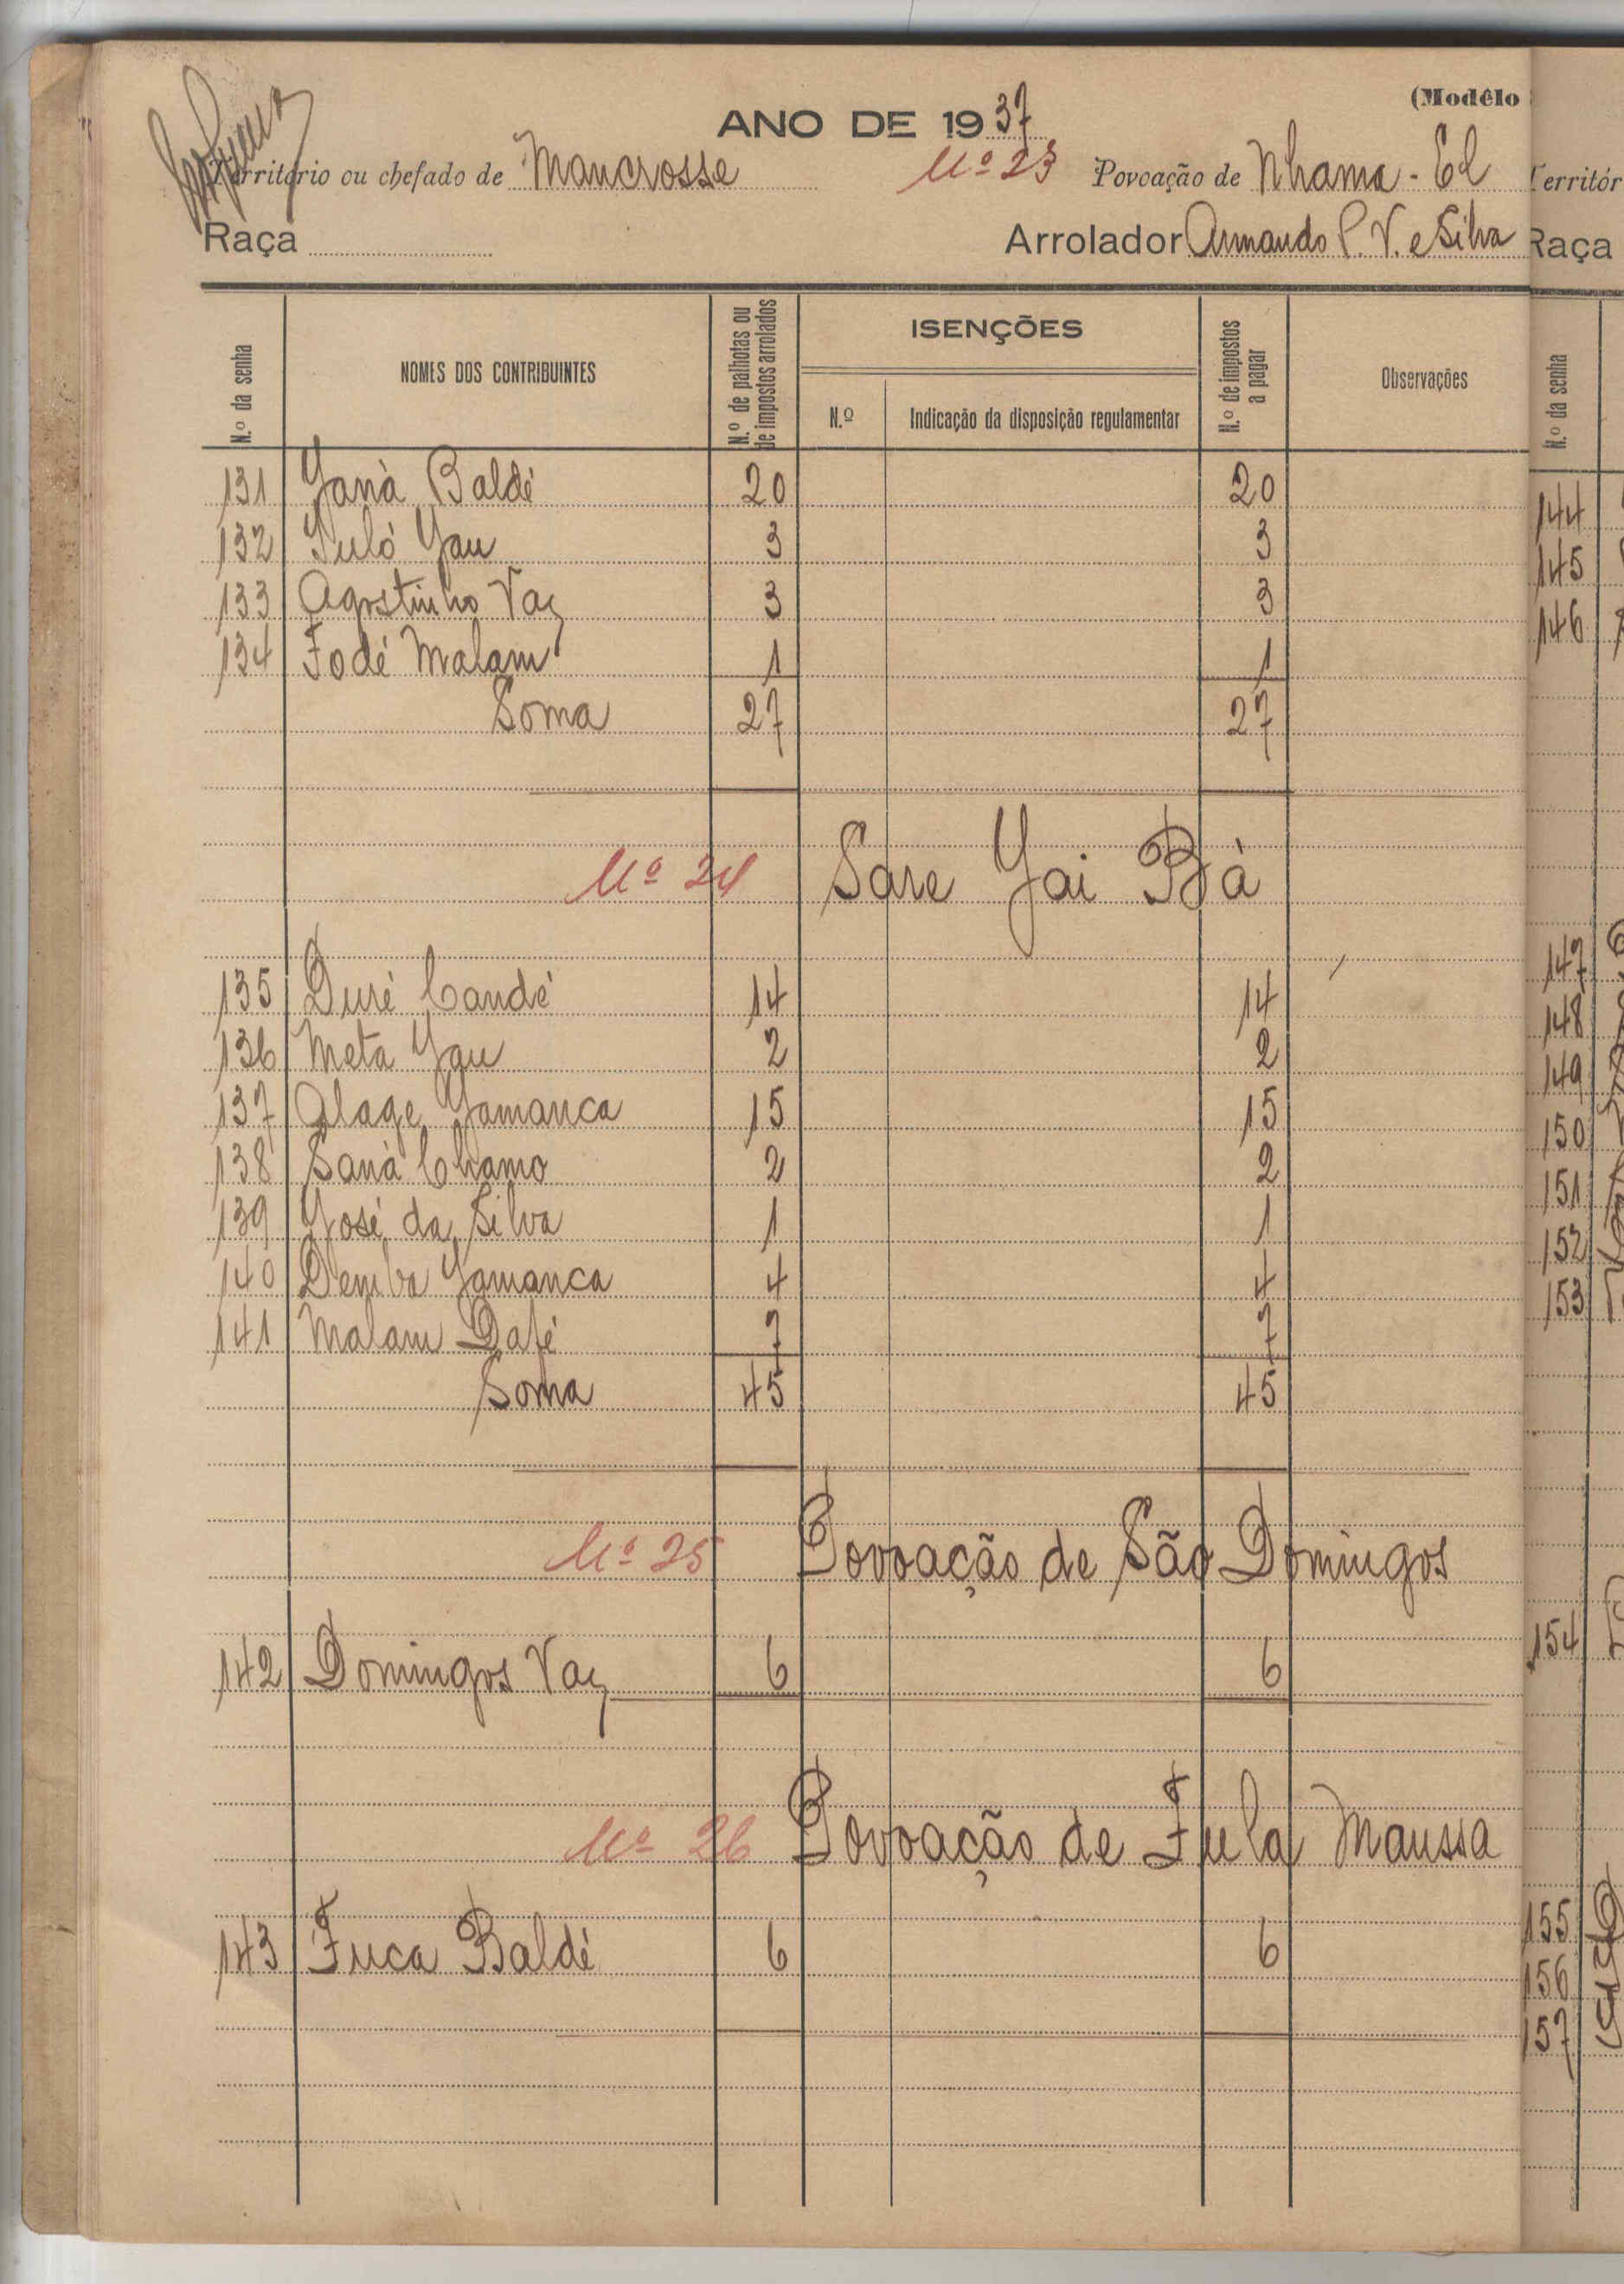 (Modêlo
ANO DE 1937
Território ou chefado de Mancrosse Nº 23 Povoação de Nhama-El
Raça Arrolador Armando P. V. e Silva
N.º da senha NOMES DOS CONTRIBUINTES N.º de palhotas ou de impostos arrolados ISENÇÕES N.º Indicação da disposição regulamentar N.º de impostos a pagar Observações
131 Yanà Baldé 20 20
132 Puló Yau 3 3
133 Agostinho Vaz 3 3
134 Fodé Malam 1 1
Soma 27 27
Nº 24 Sare Yai Bà
135 Duré Candé 14 14
136 Meta Yau 2 2
137 Alage Yamanca 15 15
138 Sanà Chamo 2 2
139 José da Silva 1 1
140 Demba Yamanca 4 4
141 Malam Dafé 7 7
Soma 45 45
Nº 25 Povoação de São Domingos
142 Domingos Vaz 6 6
Nº 26 Povoação de Fula Maussa
143 Fuca Baldé 6 6
Territór
Raça
N.º da senha
144
145
146
147
148
149
150
151
152
153
154
155
156
157